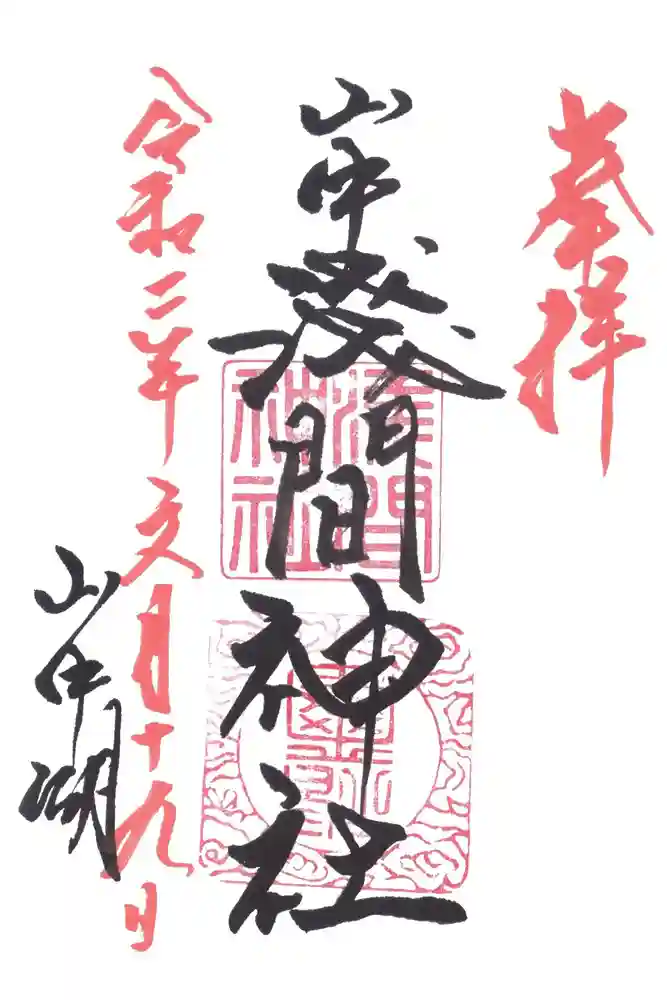 奉拝
山中淺間神社
淺間
神社
令和二年文月十九日
山中湖